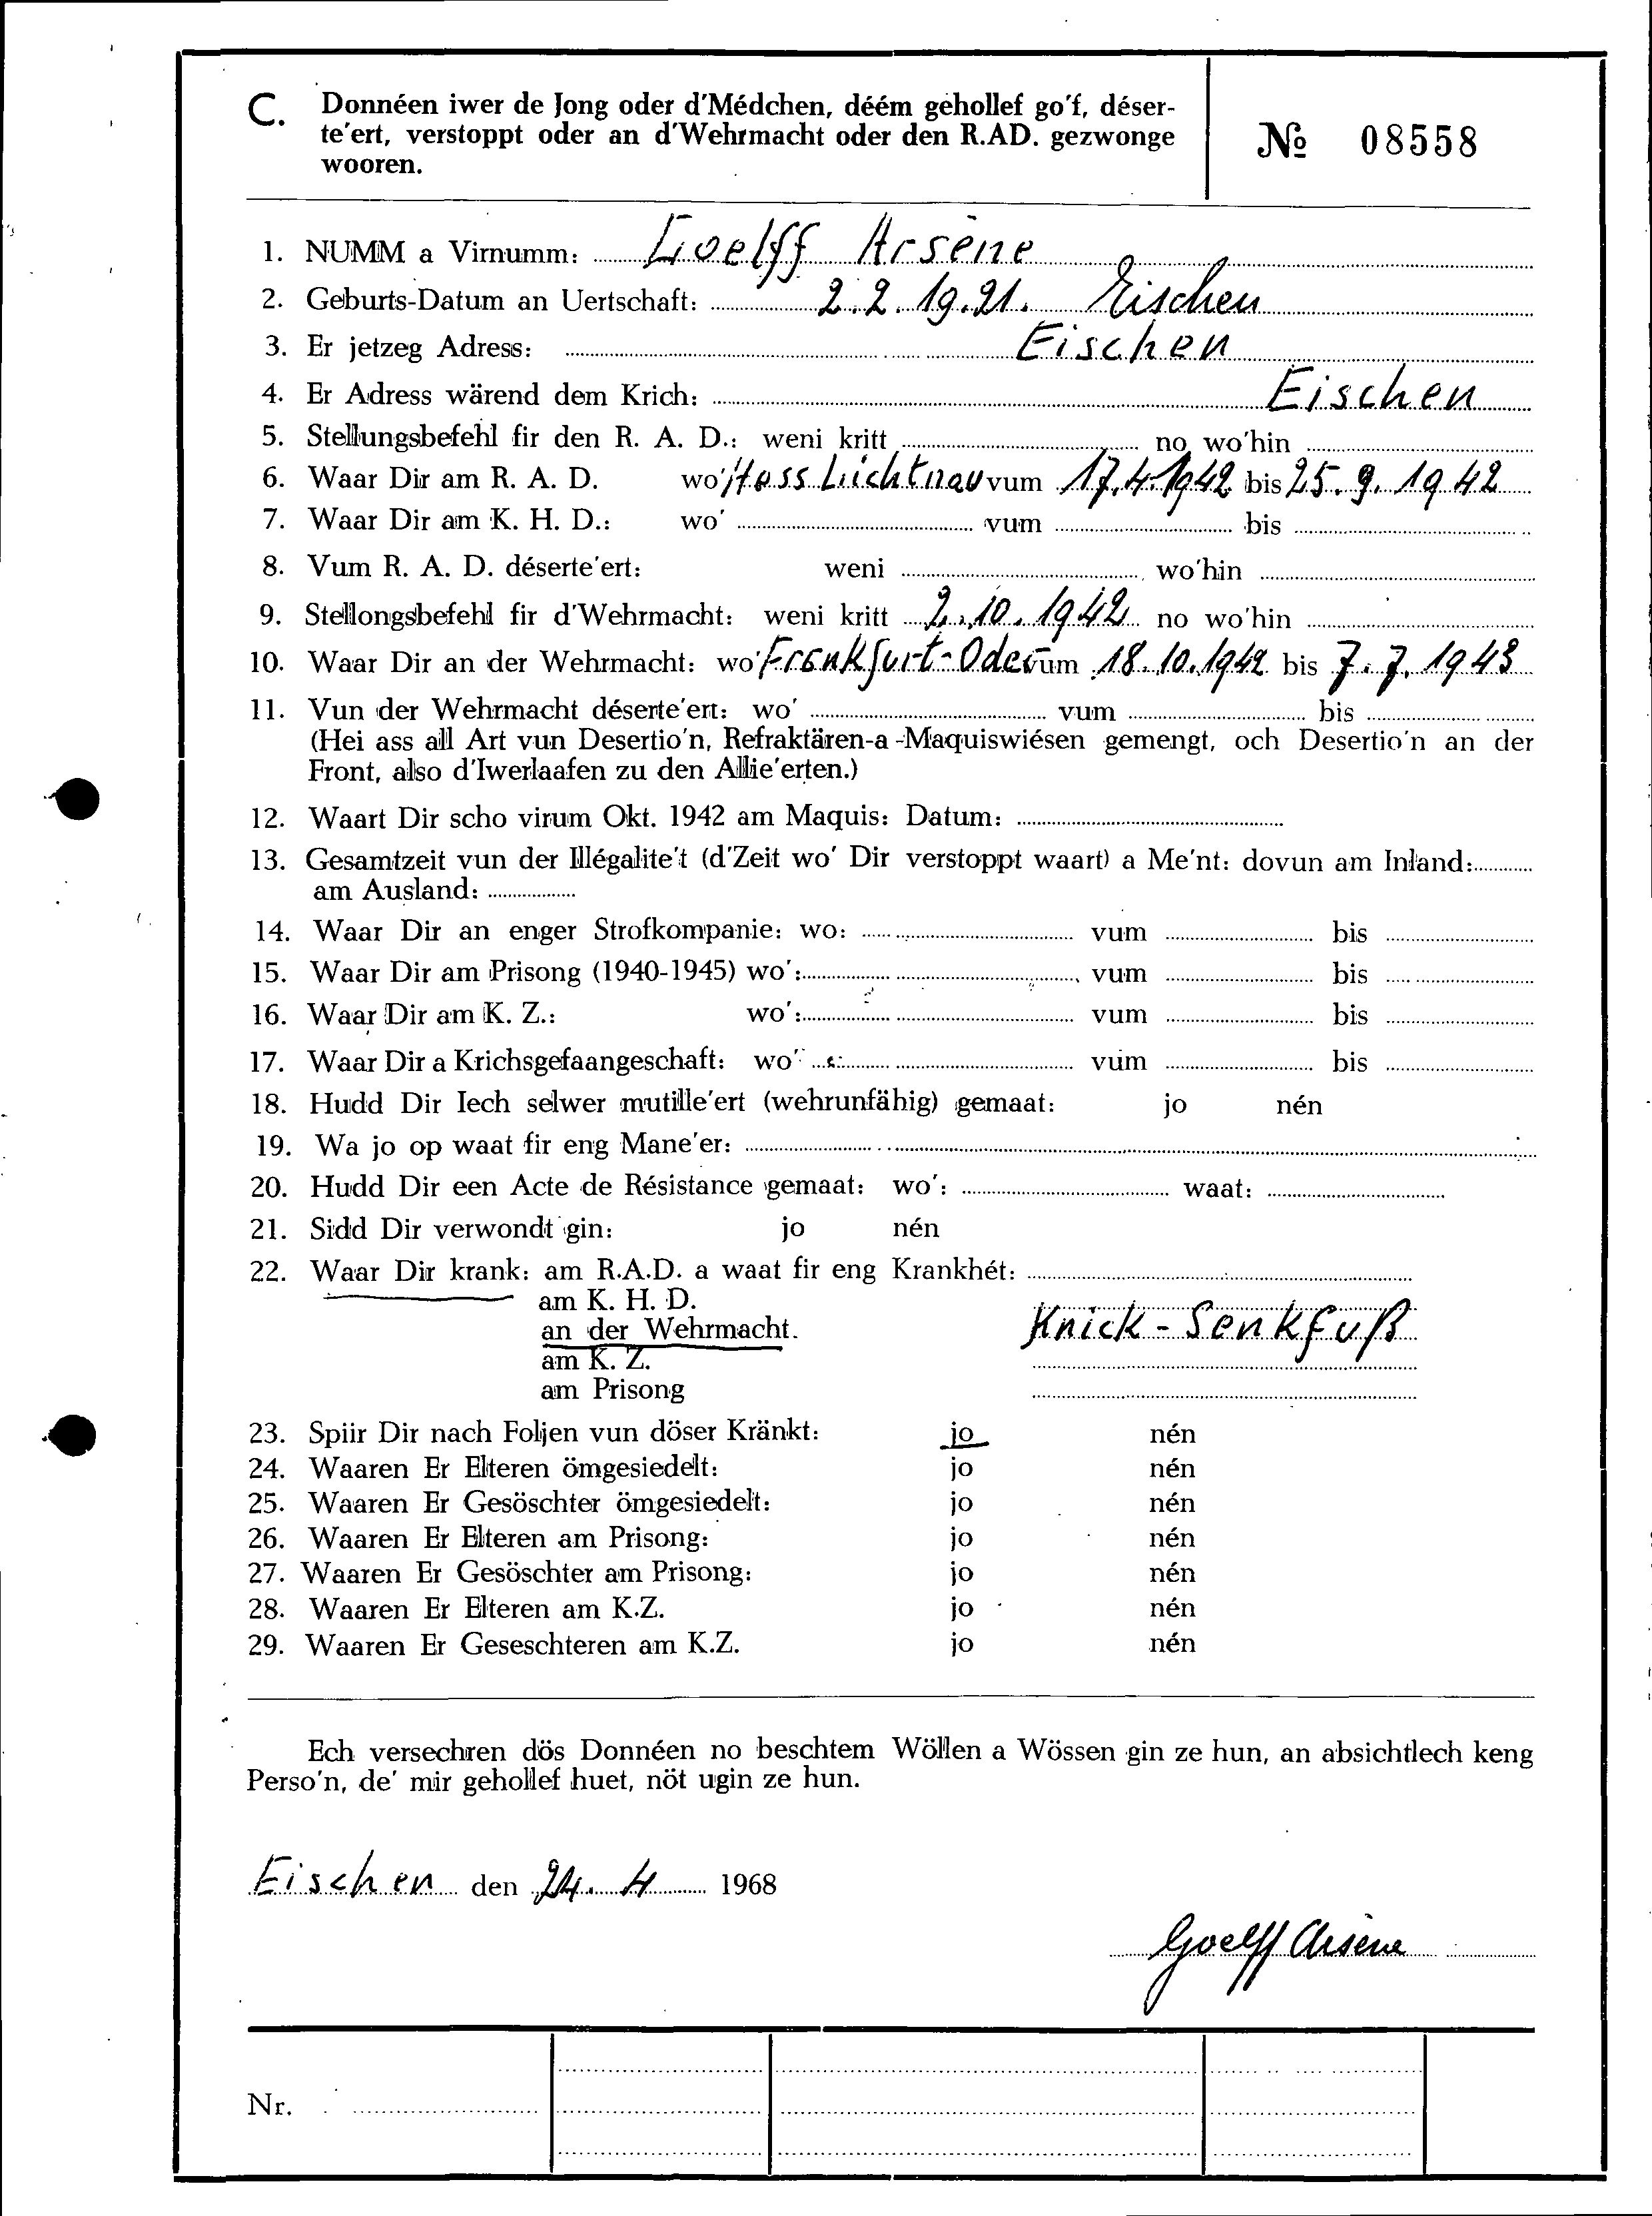 C. Donnéen iwer de Jong oder d'Médchen, déém gehollef go'f, déser-
te'ert, verstoppt oder an d'Wehrmacht oder den R.AD. gezwonge
wooren.
№ 08558
1. NUMM a Virnumm: Goelff Arsène
2. Geburts-Datum an Uertschaft: 2.2.1921. Eischen
3. Er jetzeg Adress: Eischen
4. Er Adress wärend dem Krich: Eischen
5. Stellungsbefehl fir den R. A. D.: weni kritt no wo'hin
6. Waar Dir am R. A. D. wo' Hess Lichtnau vum 17.4.1942 bis 25.9.1942
7. Waar Dir am K. H. D.: wo' vum bis
8. Vum R. A. D. déserte'ert: weni wo'hin
9. Stellongsbefehl fir d'Wehrmacht: weni kritt 2.10.1942 no wo'hin
10. Waar Dir an der Wehrmacht: wo' Frankfurt-Oder vum 18.10.1942 bis 7.7.1943
11. Vun der Wehrmacht déserte'ert: wo' vum bis
(Hei ass all Art vun Desertio'n, Refraktären-a-Maquiswiésen gemengt, och Desertio'n an der
Front, also d'Iwerlaafen zu den Allie'erten.)
12. Waart Dir scho virum Okt. 1942 am Maquis: Datum:
13. Gesamtzeit vun der Illégalite't (d'Zeit wo' Dir verstoppt waart) a Me'nt: dovun am Inland:
am Ausland:
14. Waar Dir an enger Strofkompanie: wo: vum bis
15. Waar Dir am Prisong (1940-1945) wo': vum bis
16. Waar Dir am K. Z.: wo': vum bis
17. Waar Dir a Krichsgefaangeschaft: wo' vum bis
18. Hudd Dir Iech selwer mutille'ert (wehrunfähig) gemaat: jo nén
19. Wa jo op waat fir eng Mane'er:
20. Hudd Dir een Acte de Résistance gemaat: wo': waat:
21. Sidd Dir verwondt gin: jo nén
22. Waar Dir krank: am R.A.D. a waat fir eng Krankhét:
am K. H. D.
an der Wehrmacht. Knick-Senkfuß
am K. Z.
am Prisong
23. Spiir Dir nach Foljen vun döser Kränkt: jo nén
24. Waaren Er Elteren ömgesiedelt: jo nén
25. Waaren Er Gesöschter ömgesiedelt: jo nén
26. Waaren Er Elteren am Prisong: jo nén
27. Waaren Er Gesöschter am Prisong: jo nén
28. Waaren Er Elteren am K.Z. jo nén
29. Waaren Er Geseschteren am K.Z. jo nén
Ech versechren dös Donnéen no beschtem Wöllen a Wössen gin ze hun, an absichtlech keng
Perso'n, de' mir gehollef huet, nöt ugin ze hun.
Eischen den 24. 4 1968
Goelff Arsène
Nr.